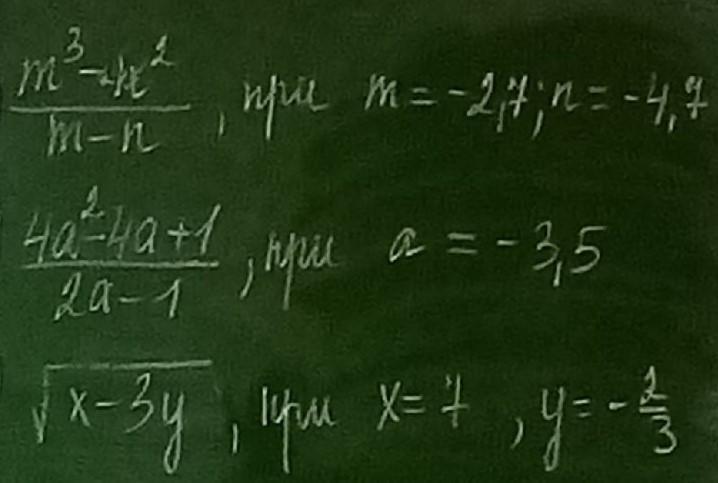 m³-n² / m-n , при m = -2,7; n = -4,7
4a²-4a+1 / 2a-1 , при a = -3,5
√(x-3y) , при x = 7 , y = -2/3